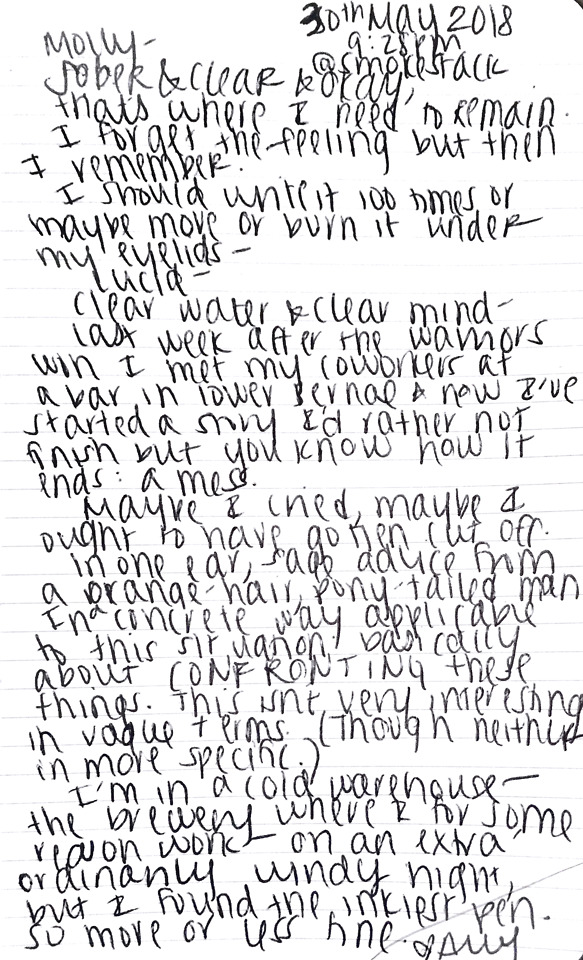 30th May 2018
9:28pm
@smokestack
Molly-
Sober & clear & okay,
thats where I need to remain.
I forget the feeling but then
I remember.
I should write it 100 times or
maybe more or burn it under
my eyelids-
lucid-
clear water & clear mind-
last week after the warriors
win I met my coworkers at
a bar in lower Bernal & now I've
started a story I'd rather not
finish but you know how it
ends: a mess.
Maybe I cried, maybe I
ought to have gotten cut off.
in one ear, sage advice from
a orange-hair, pony-tailed man
In a concrete way applicable
to this situation, basically
about CONFRONTING these
things. This isnt very interesting
in vague terms. (Though neither
in more specific.)
I'm in a cold warehouse-
the brewery where I for some
reason work- on an extra
ordinarily windy night,
but I found the inkiest pen.
So more or less fine.
Ally